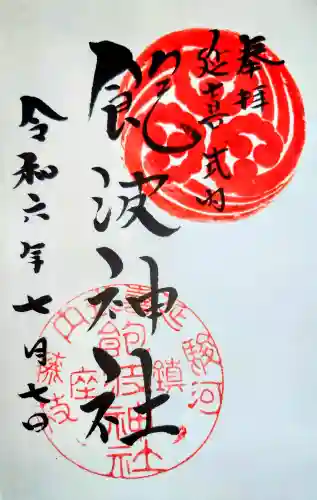 奉拝
延喜式内
飽波神社
令和六年七月七日
駿河
鎮座
藤枝
飽波神社